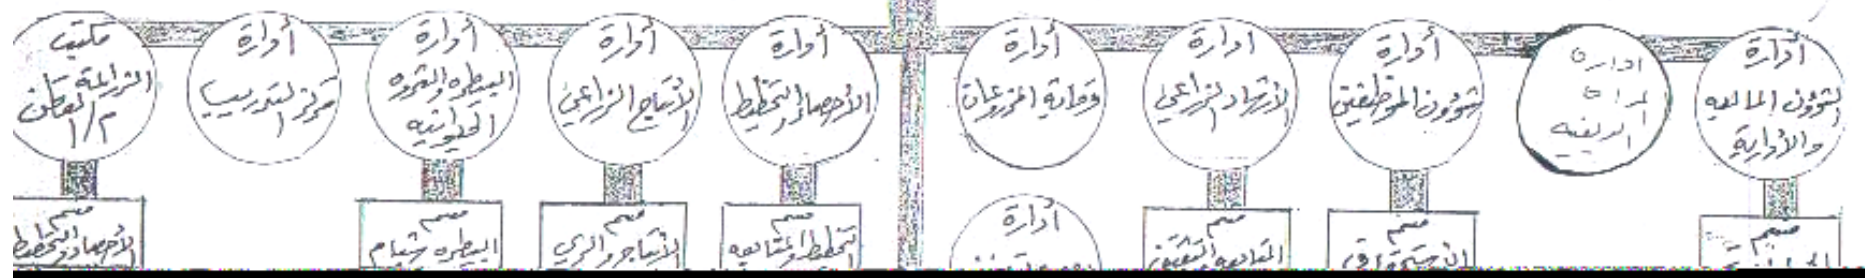 أدارة
الشؤون المالية
والأدارية
ادارة
المراة
الريفيه
أدارة
شؤون الموظفين
ادارة
الأرشاد الزراعي
أدارة
وقاية المزروعات
أدارة
الأحصاء والتخطيط
أدارة
الأنتاج الزراعي
أدارة
البيطره والثروه
الحيوانيه
أدارة
مركز التدريب
مكتب
الزراعة
م/ا
قسم
قسم
قسم
أدارة
قسم
التخطيط والمتابعه
قسم
الأنتاج والري
قسم
البيطره شبام
قسم
الأحصاء والتخطيط